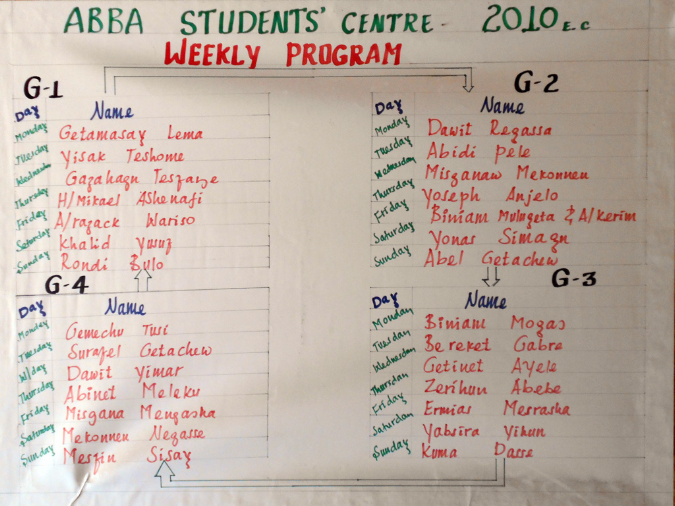 ABBA STUDENTS' CENTRE - 2010 E.C
WEEKLY PROGRAM
G-1
Day Name
Monday Getamasay Lema
Tuesday Yisak Teshome
Wednesday Gazahagn Tesfaye
Thursday H/Mikael Ashenafi
Friday A/razack Wariso
Saturday Khalid Yusuf
Sunday Rondi Bulo
G-2
Day Name
Monday Dawit Regassa
Tuesday Abidi Pele
Wednesday Misganaw Mekonnen
Thursday Yoseph Anjelo
Friday Biniam Mulugeta & A/kerim
Saturday Yonas Simagn
Sunday Abel Getachew
G-4
Day Name
Monday Gemechu Tusi
Tuesday Surafel Getachew
W/day Dawit Yimar
Thursday Abinet Meleku
Friday Misgana Mengasha
Saturday Mekonnen Negasse
Sunday Mesfin Sisay
G-3
Day Name
Monday Biniam Mogas
Tuesday Bereket Gabre
Wednesday Getinet Ayele
Thursday Zerihun Abebe
Friday Ermias Mesrasha
Saturday Yabsira Yihun
Sunday Kuma Dasse